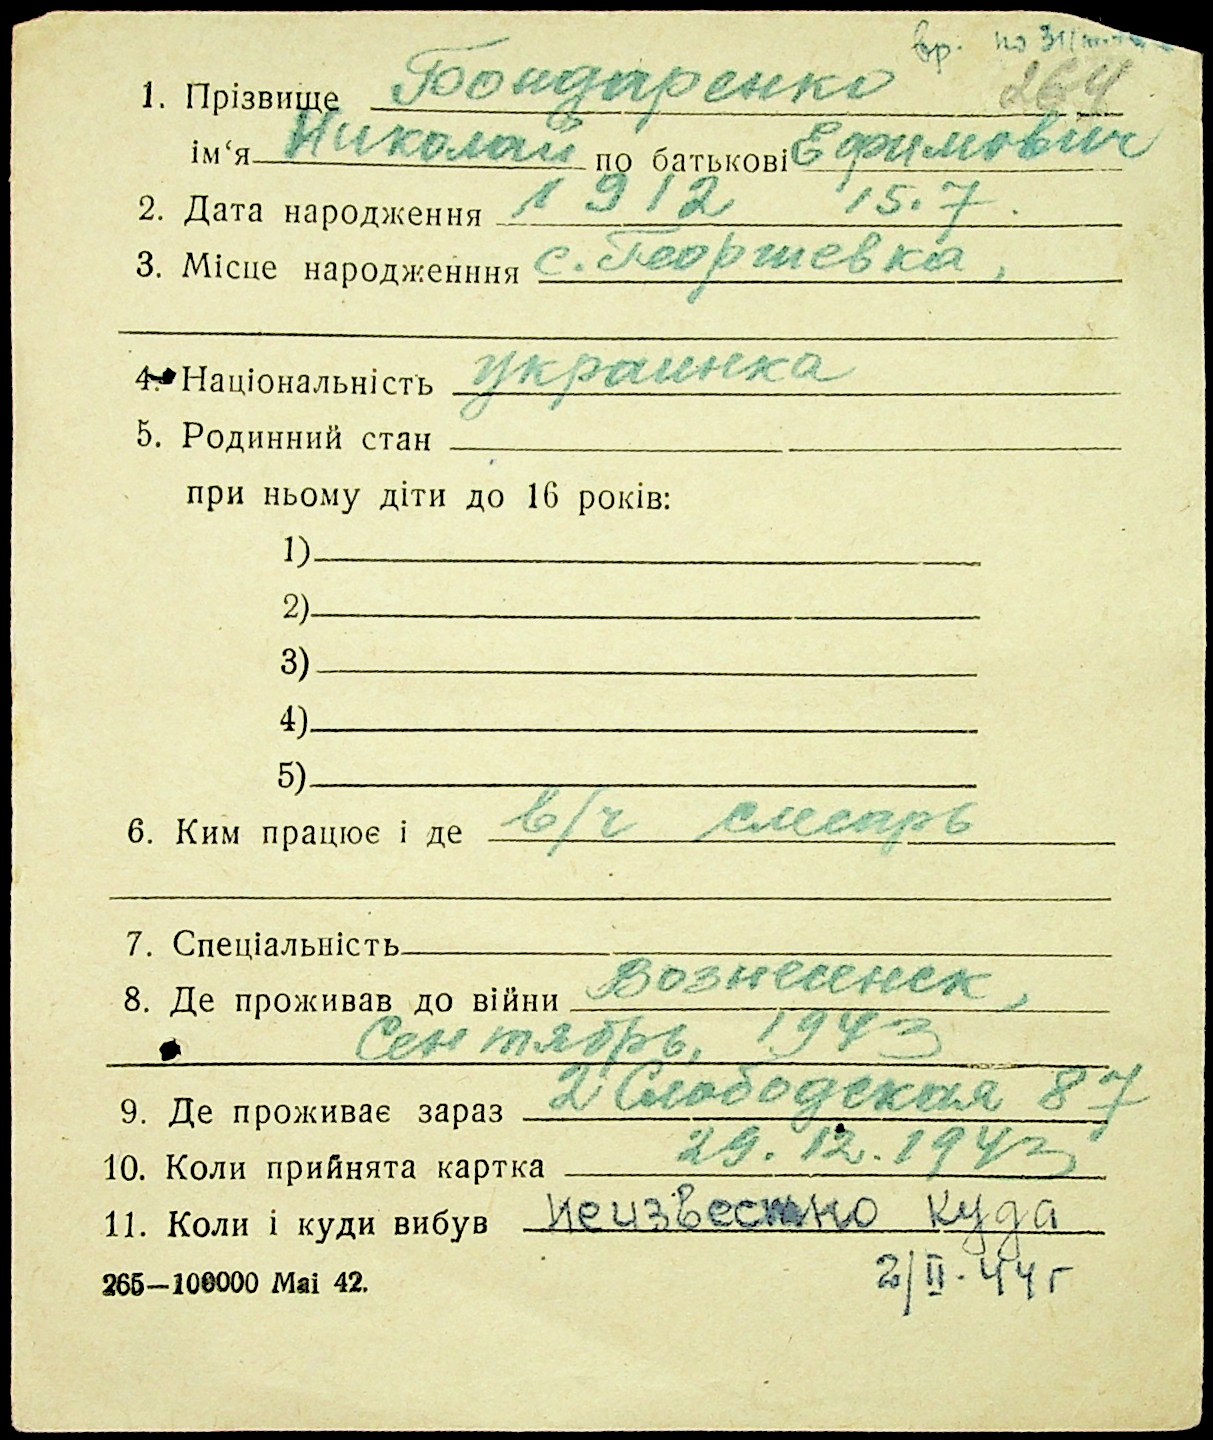 вр. по 31/III
1. Прізвище Бондаренко 264
ім‘я Николай по батькові Ефимович
2. Дата народження 1912 15.7.
3. Місце народженння с. Георгиевка,
4. Національність украинка
5. Родинний стан
при ньому діти до 16 років:
1)
2)
3)
4)
5)
6. Ким працює і де в/ч слесарь
7. Спеціальність
8. Де проживав до війни Вознесенск,
Сентябрь, 1943
9. Де проживає зараз 2 Слободская 87
10. Коли прийнята картка 29.12.1943
11. Коли і куди вибув неизвестно куда
265—100000 Mai 42. 2/II-44 г